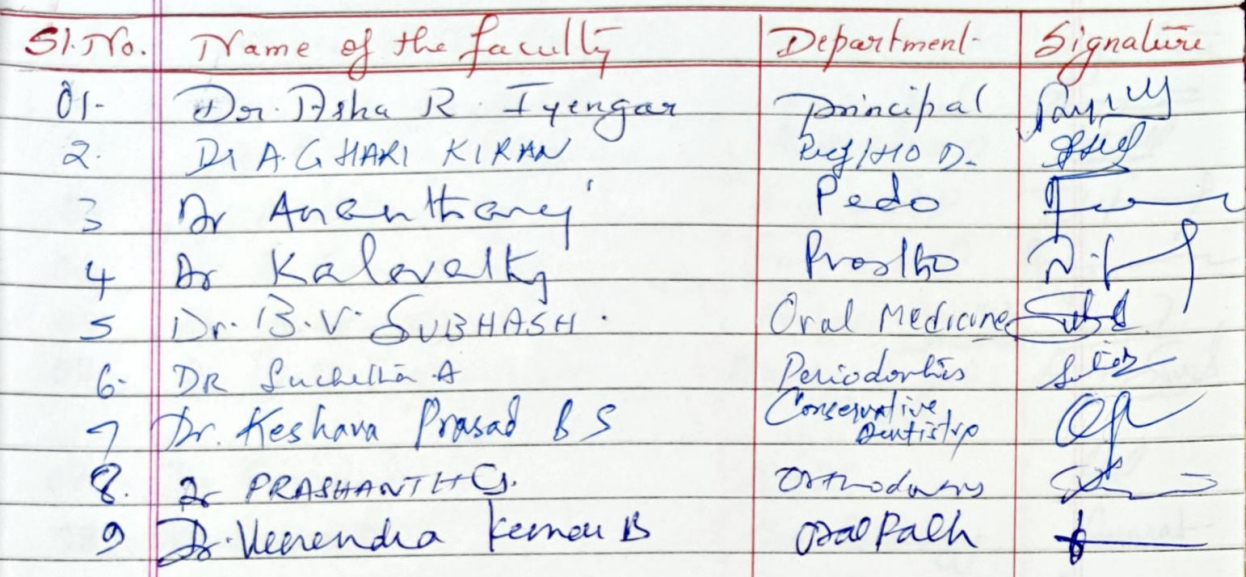 Sl.No. Name of the faculty Department Signature
01- Dr. Asha R. Iyengar Principal
2. Dr A.G HARI KIRAN Prof/HOD.
3 Dr Ananthraj Pedo
4 Dr Kalavathy Prostho
5 Dr. B.V. SUBHASH. Oral Medicine
6- DR Suchetha A Periodontics
7 Dr. Keshava Prasad B S Conservative
Dentistry
8. Dr PRASHANTH G. Orthodontics
9 Dr. Veerendra Kumar B Oral Path